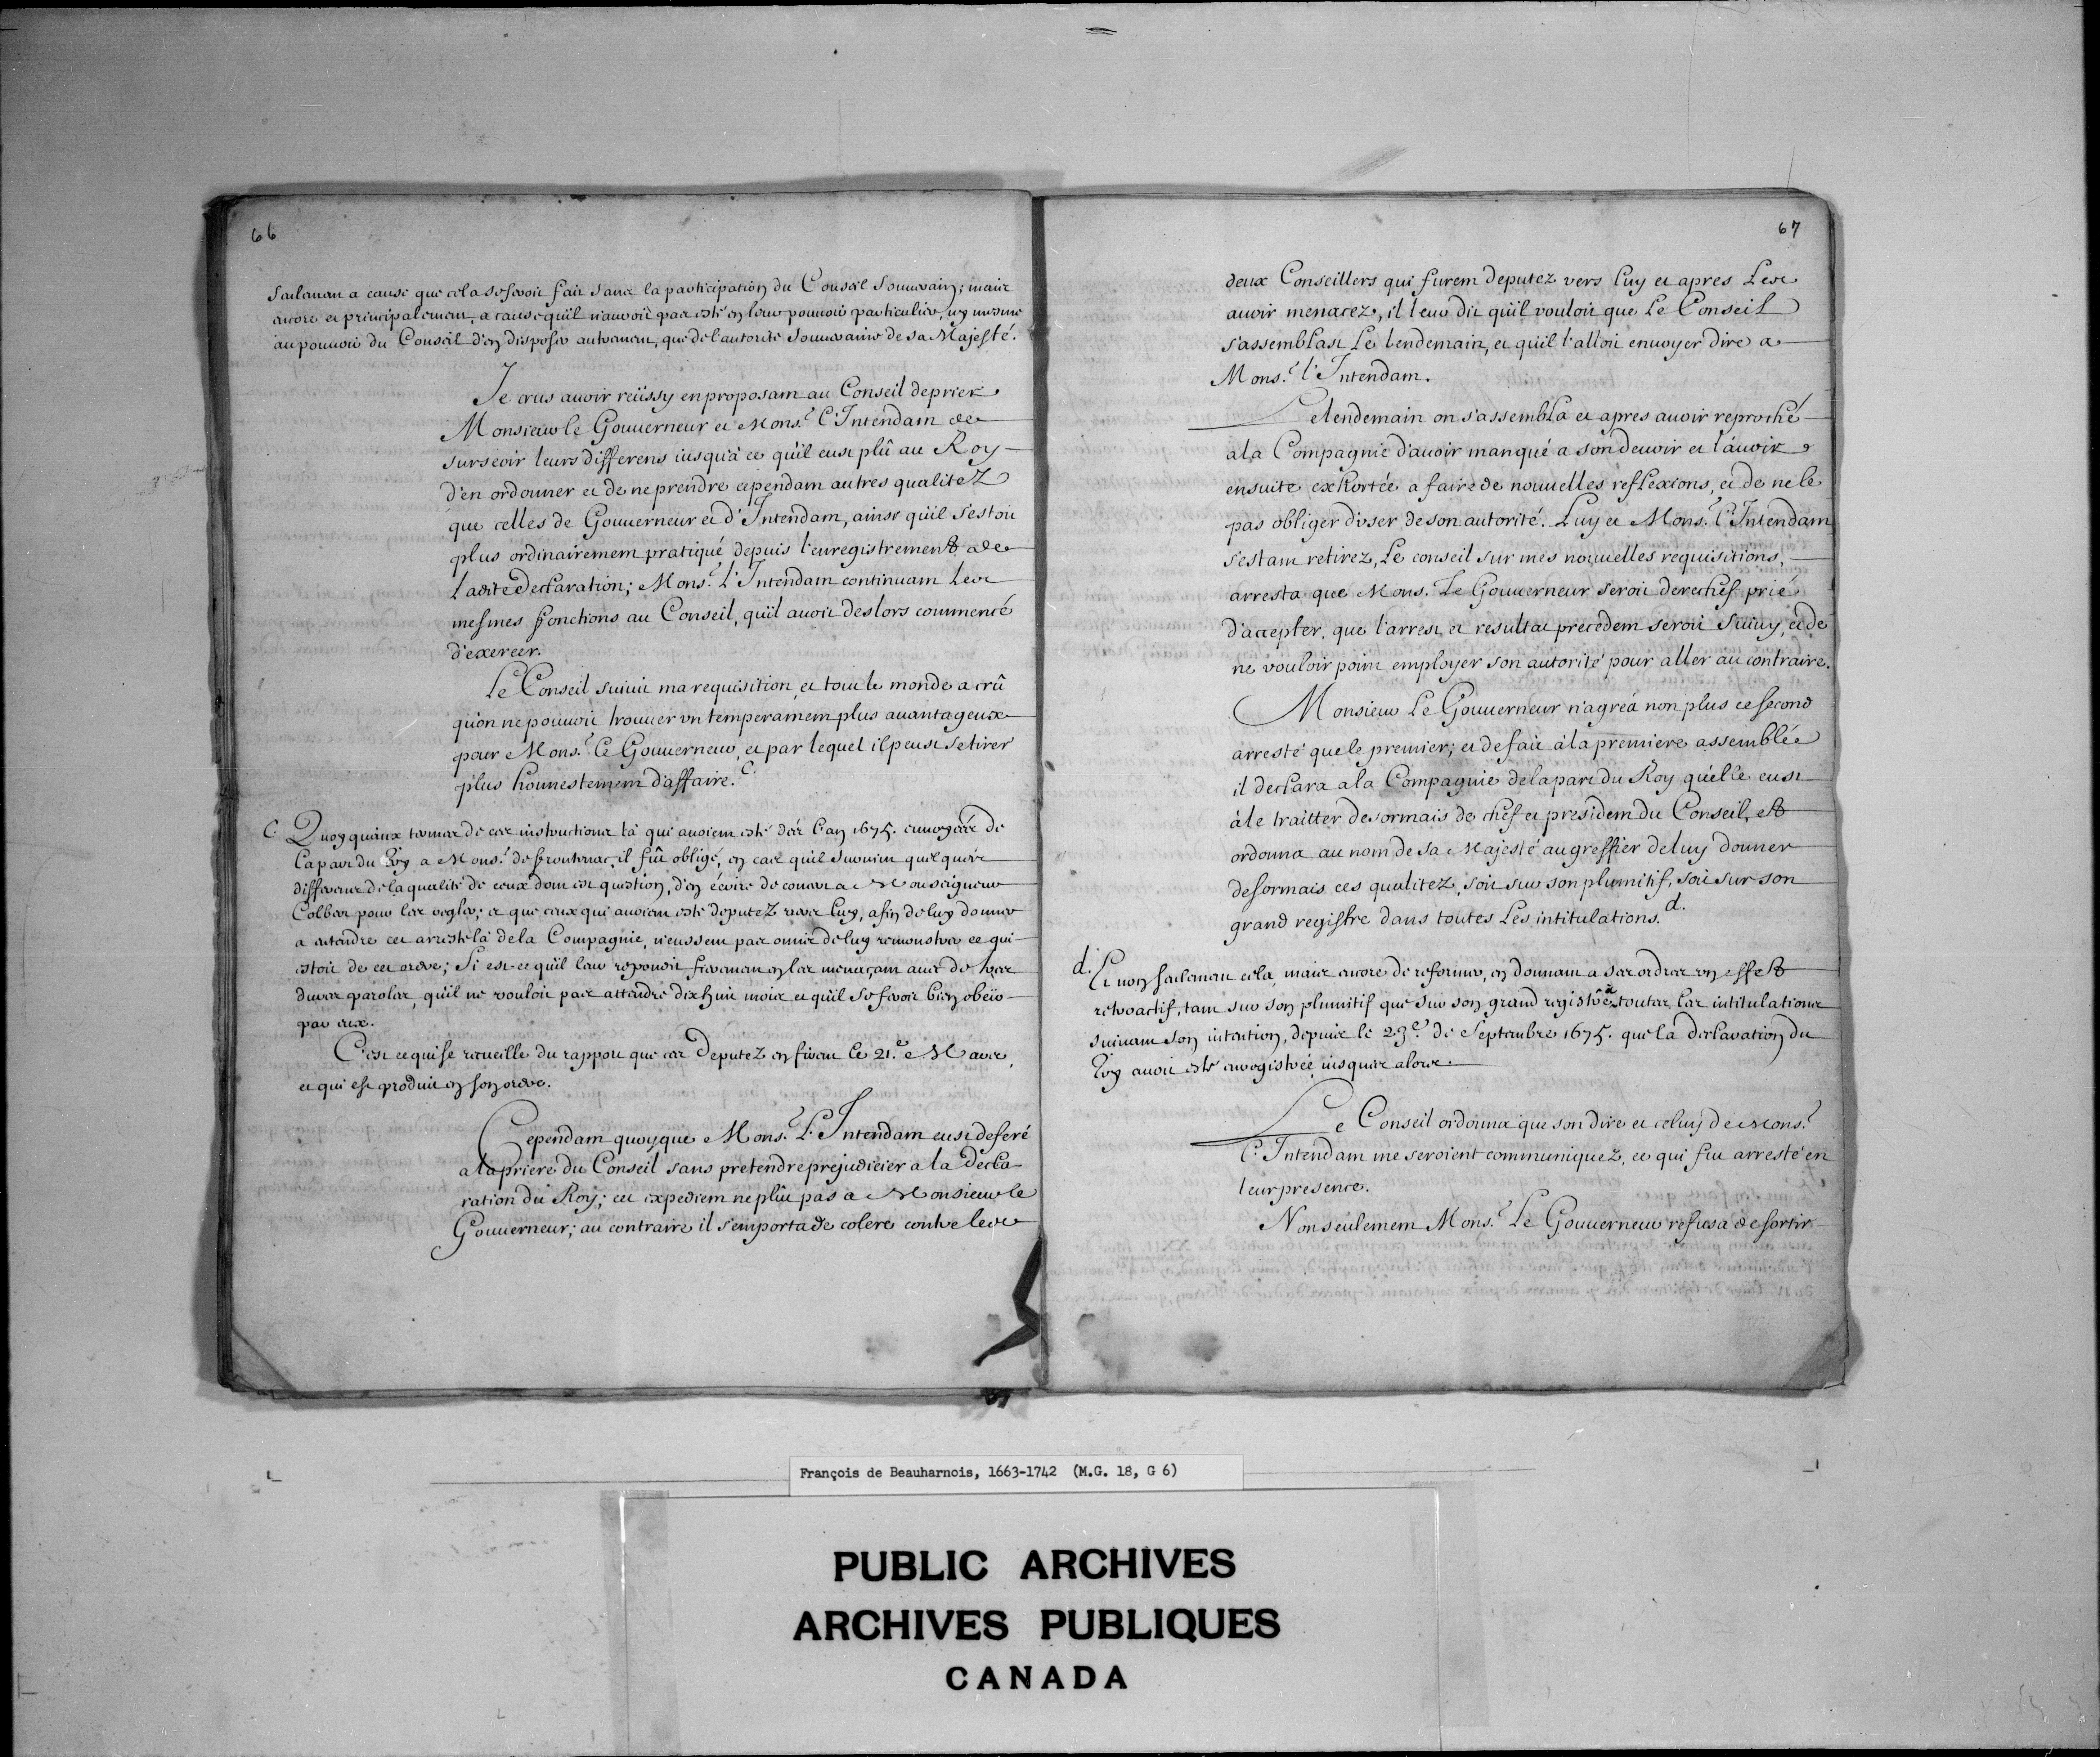 66
seulement a cause que cela se seroit fait sans la participation du Conseil Souverain; mais
encore et principalement, a cause qu'il n'auroit pas esté en leur pouvoir particulier, ny mesme
au pouvoir du Conseil d'en disposer autrement, que de l'autorité souveraine de sa Majesté.
Je crus auoir reüssy en proposant au Conseil de prier
Monsieur le Gouuerneur et Mons.r l'Intendant de
surseoir leurs differens iusqu'à ce qu'il eust plû au Roy
d'en ordonner et de ne prendre cependant autres qualitez
que celles de Gouuerneur et d'Intendant, ainsi qu'il s'estoit
plus ordinairement pratiqué depuis l'enregistrement de
ladite Declaration; Mons.r l'Intendant continuant les
mesmes fonctions au Conseil, qu'il auoit deslors commencé
d'exercer.
Le Conseil suiuit ma requisition et tout le monde a crû
qu'on ne pouuoit trouuer vn temperament plus auantageux
pour Mons.r le Gouuerneur, et par lequel il peust se tirer
plus honnestement d'affaire. c.
c. Quoy qu'aux termes de ces instructions là qui auoient esté dés l'an 1675. enuoyées de
la part du Roy a Mons.r de frontenac, il fût obligé, en cas qu'il suruint quelques
differens de la qualité de ceux dont est question, d'en écrire de concert a Monseigneur
Colbert pour les regler; et que ceux qui auoient esté deputez vers luy, afin de luy donner
a entendre cet arresté là de la Compagnie, n'eussent pas omis de luy remonstrer ce qui
estoit de cet ordre; Si est-ce qu'il leur repondit fierement en les menaçant auec de tres
dures paroles, qu'il ne vouloit pas attendre dix huit mois et qu'il se feroit bien obeïr
par eux.
C'est ce qui se recueille du rapport que ces Deputez en firent le 21.e Mars,
et qui est produit en son ordre.
Cependant quoyque Mons.r l'Intendant eust deferé
a la priere du Conseil sans pretendre prejudicier a la Decla-
ration du Roy; cet expedient ne plût pas a Monsieur le
Gouuerneur; au contraire il s'emporta de colere contre les
67
deux Conseillers qui furent deputez vers luy et apres les
auoir menacez, il leur dit qu'il vouloit que le Conseil
s'assemblast le lendemain, et qu'il l'alloit enuoyer dire a
Mons.r l'Intendant.
Le lendemain on s'assembla et apres auoir reproché
à la Compagnie d'auoir manqué a son deuoir et l'auoir
ensuite exhortée a faire de nouuelles reflexions, et de ne le
pas obliger d'vser de son autorité. Luy et Mons.r l'Intendant
s'estant retirez, le conseil sur mes nouuelles requisitions,
arresta que Mons. le Gouuerneur seroit derechef prié
d'accepter, que l'arrest et resultat precedent seroit suiuy, et de
ne vouloir point employer son autorité pour aller au contraire.
Monsieur le Gouuerneur n'agréa non plus ce second
arresté que le premier; et de fait à la premiere assemblée
il declara a la Compagnie de la part du Roy qu'elle eust
à le traitter desormais de chef et president du Conseil, et
ordonna au nom de sa Majesté au greffier de luy donner
desormais ces qualitez, soit sur son plumitif, soit sur son
grand registre dans toutes les intitulations. d.
d. Et non seulement cela, mais encore de reformer, en donnant a ses ordres vn effet
retroactif, tant sur son plumitif que sur son grand registre à toutes les intitulations
suiuant son intention, depuis le 23.e de Septembre 1675. que la declaration du
Roy auoit esté enregistrée iusques alors.
Le Conseil ordonna que son dire et celuy de Mons.r
l'Intendant me seroient communiquez, ce qui fut arresté en
leur presence.
Non seulement Mons.r le Gouuerneur refusa de sortir
François de Beauharnois, 1663-1742 (M.G. 18, G 6)
PUBLIC ARCHIVES
ARCHIVES PUBLIQUES
CANADA